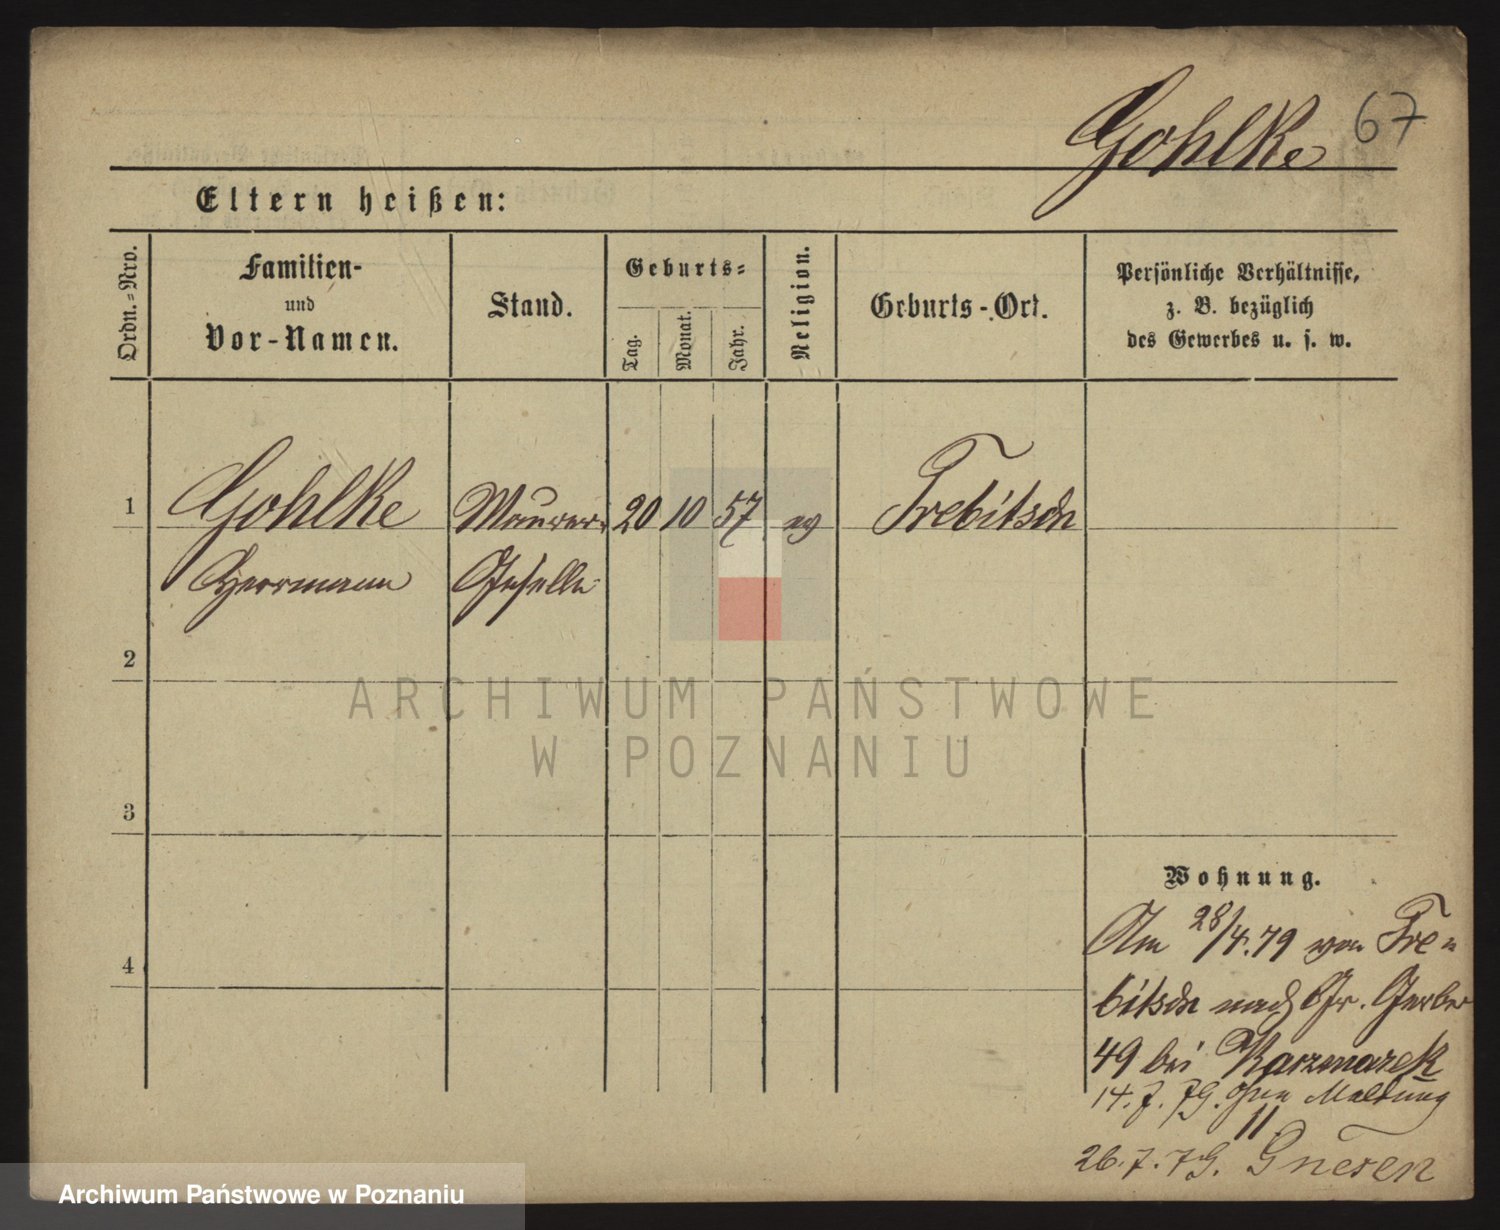 Gohlke 67
Eltern heißen:
Ordn.-Nro.
Familien-
und
Vor-Namen.
Stand.
Geburts-
Tag.
Monat.
Jahr.
Religion.
Geburts-Ort.
Persönliche Verhältnisse,
z. B. bezüglich
des Gewerbes u. s. w.
1 Gohlke Maurer- 20 10 57 ev Trebitsch
Herrmann Geselle
2
ARCHIWUM PAŃSTWOWE
W POZNANIU
3
Wohnung.
Am 28/4.79 von Tre-
4
bitsch nach Gr. Gerber
49 bei Kaczmarek
14.7.79. ohne Meldung
11
26.7.79. Gnesen
Archiwum Państwowe w Poznaniu